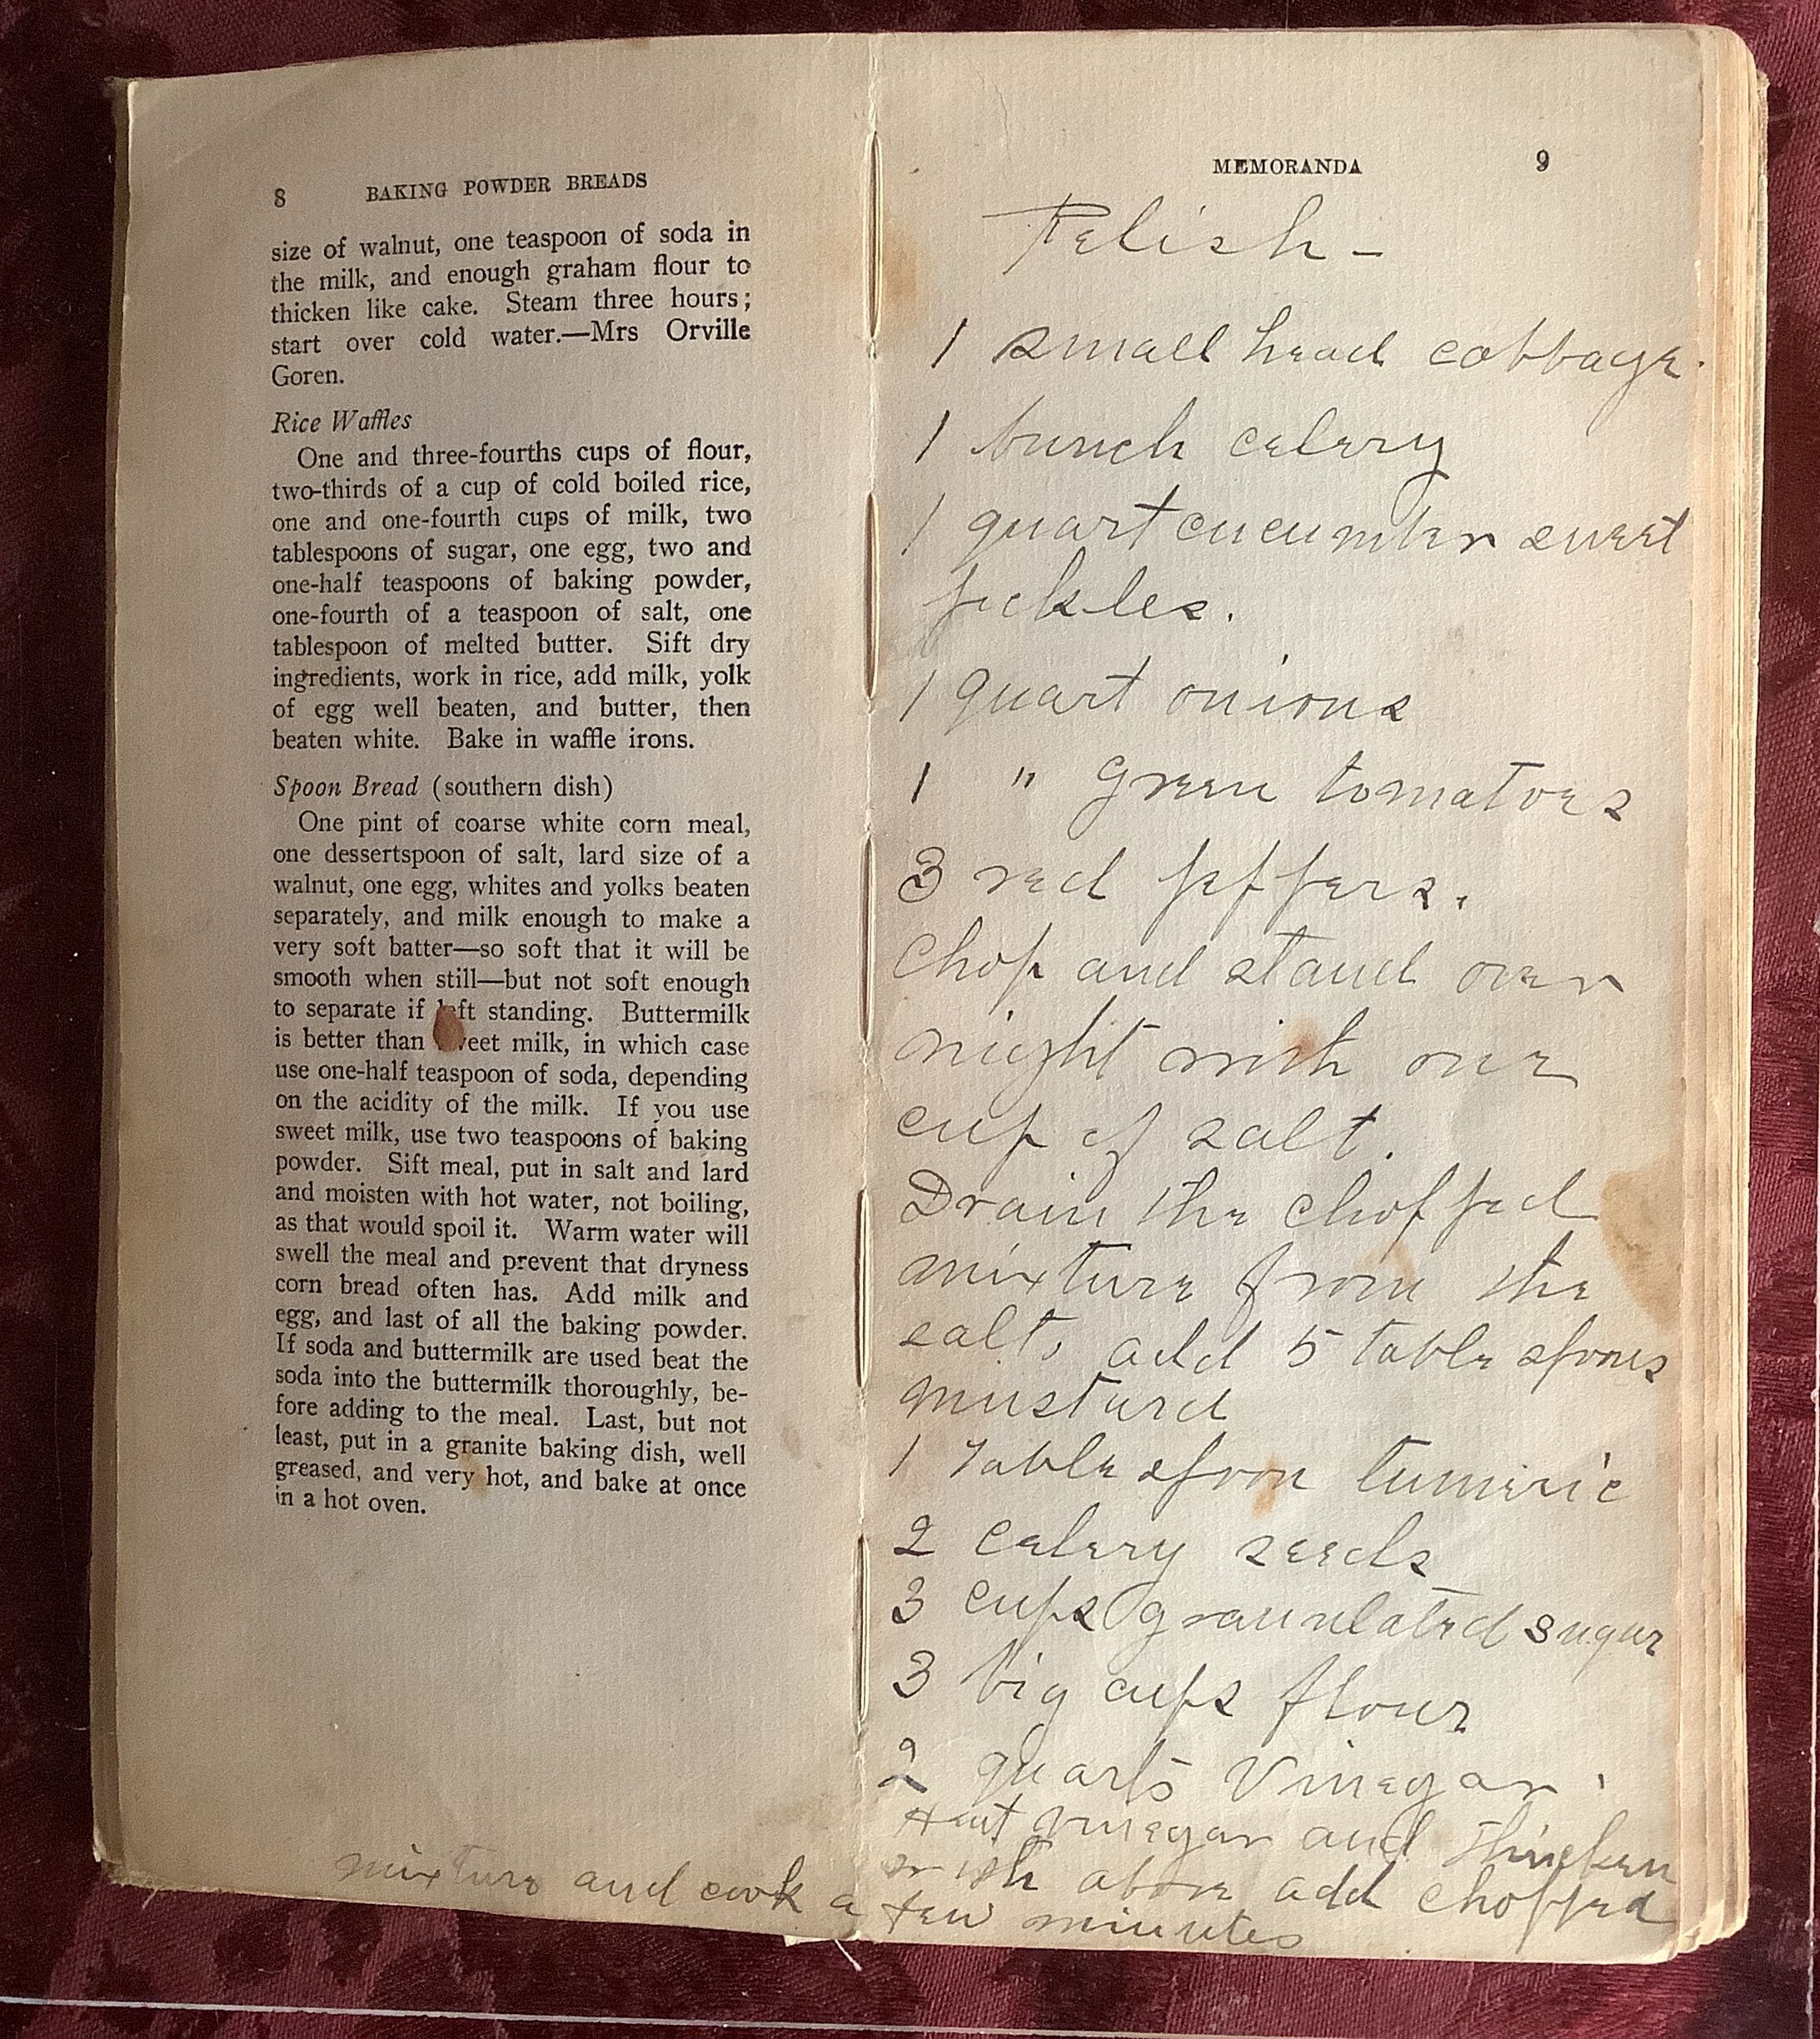 8 BAKING POWDER BREADS
size of walnut, one teaspoon of soda in
the milk, and enough graham flour to
thicken like cake. Steam three hours;
start over cold water.—Mrs Orville
Goren.
Rice Waffles
One and three-fourths cups of flour,
two-thirds of a cup of cold boiled rice,
one and one-fourth cups of milk, two
tablespoons of sugar, one egg, two and
one-half teaspoons of baking powder,
one-fourth of a teaspoon of salt, one
tablespoon of melted butter. Sift dry
ingredients, work in rice, add milk, yolk
of egg well beaten, and butter, then
beaten white. Bake in waffle irons.
Spoon Bread (southern dish)
One pint of coarse white corn meal,
one dessertspoon of salt, lard size of a
walnut, one egg, whites and yolks beaten
separately, and milk enough to make a
very soft batter—so soft that it will be
smooth when still—but not soft enough
to separate if left standing. Buttermilk
is better than sweet milk, in which case
use one-half teaspoon of soda, depending
on the acidity of the milk. If you use
sweet milk, use two teaspoons of baking
powder. Sift meal, put in salt and lard
and moisten with hot water, not boiling,
as that would spoil it. Warm water will
swell the meal and prevent that dryness
corn bread often has. Add milk and
egg, and last of all the baking powder.
If soda and buttermilk are used beat the
soda into the buttermilk thoroughly, be-
fore adding to the meal. Last, but not
least, put in a granite baking dish, well
greased, and very hot, and bake at once
in a hot oven.
MEMORANDA 9
Relish -
1 small head cabbage.
1 bunch celery
1 quart cucumber sweet
pickles.
1 quart onions
1 " Green tomatoes
3 red peppers.
Chop and stand over
night with one
cup of salt.
Drain the chopped
mixture from the
salt, add 5 table spoons
mustard
1 Table spoon tumeric
2 celery seeds
3 cups granulated sugar
3 big cups flour
2 quarts Vinegar.
Heat vinegar and thicken
with above add chopped
mixture and cook a few minutes